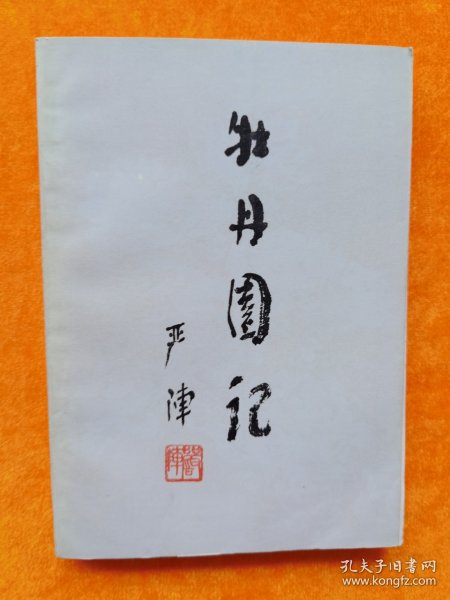 牡丹園记
严陣
孔夫子旧书网
www.kongfz.com